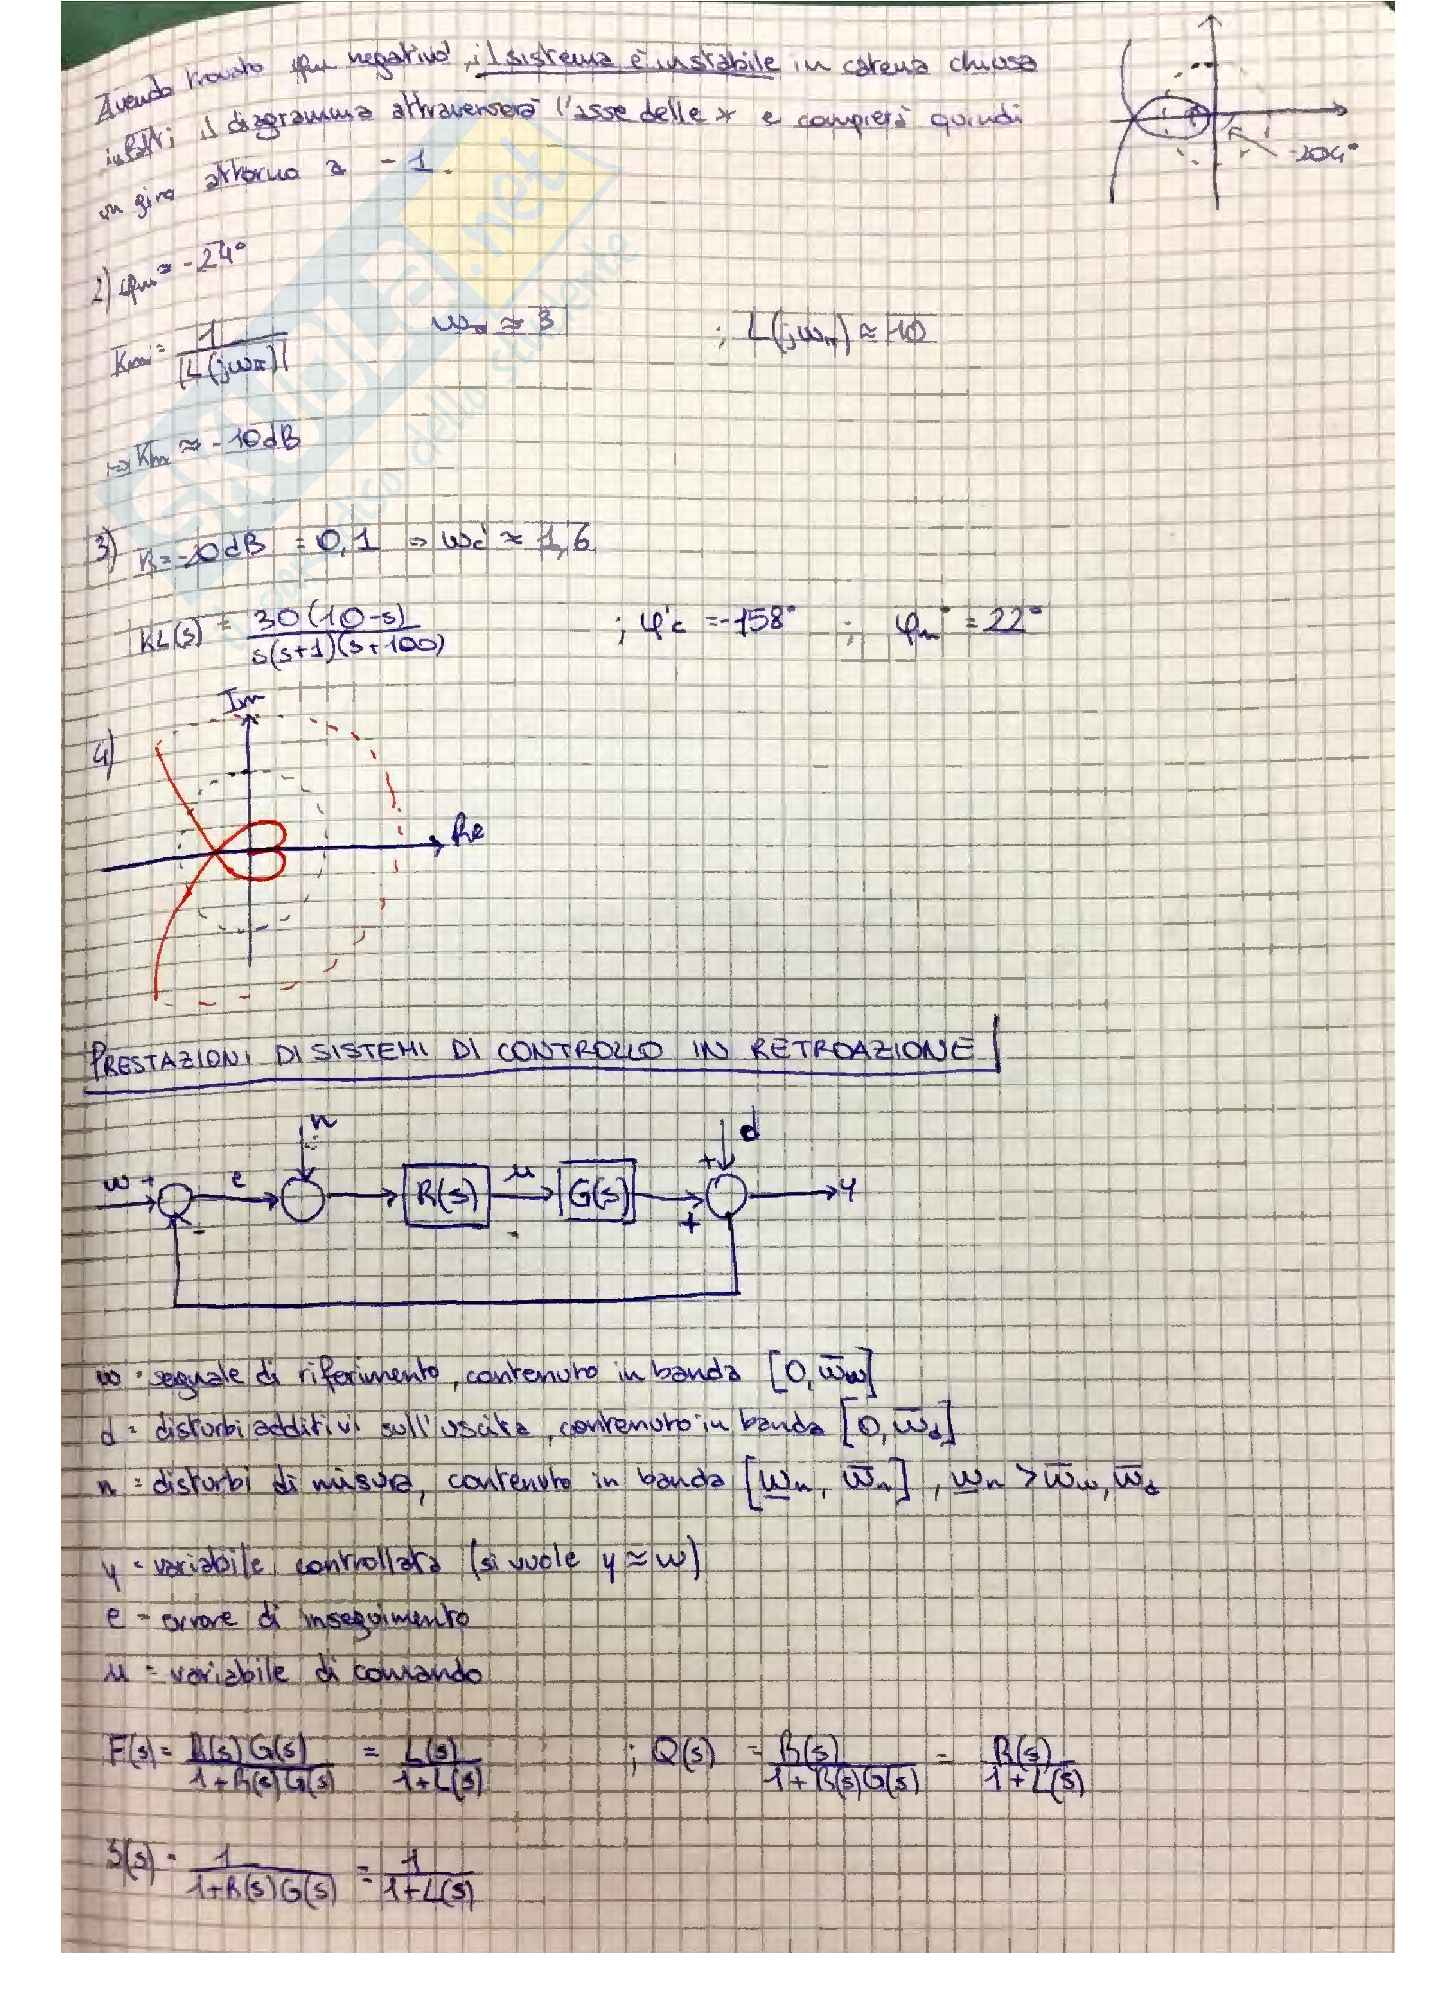 Avendo trovato φm negativo, il sistema è instabile in catena chiusa
infatti il diagramma attraverserà l'asse delle x e compierà quindi
un giro attorno a -1.
-204°
2) φm ≈ -24°
Km = 1/|L(jωπ)| ωπ ≈ 3 ; L(jωπ) ≈ 10
⇒ Km ≈ -10dB
3) K = -20dB = 0,1 ⇒ ωc' ≈ 1,6
KL(s) = 30(10-s)/s(s+1)(s+100) ; φ'c = -158° ; φm' = 22°
4)
Im
Re
PRESTAZIONI DI SISTEMI DI CONTROLLO IN RETROAZIONE
n d
w + e R(s) u G(s) + y
- +
w = segnale di riferimento, contenuto in banda [0, ω̄w]
d = disturbi additivi sull'uscita, contenuto in banda [0, ω̄d]
n = disturbi di misura, contenuto in banda [ω̲n, ω̄n], ω̲n > ω̄w, ω̄d
y = variabile controllata (si vuole y ≈ w)
e = errore di inseguimento
u = variabile di comando
F(s) = R(s)G(s)/1+R(s)G(s) = L(s)/1+L(s) ; Q(s) = R(s)/1+R(s)G(s) = R(s)/1+L(s)
S(s) = 1/1+R(s)G(s) = 1/1+L(s)
SKUOLA.net